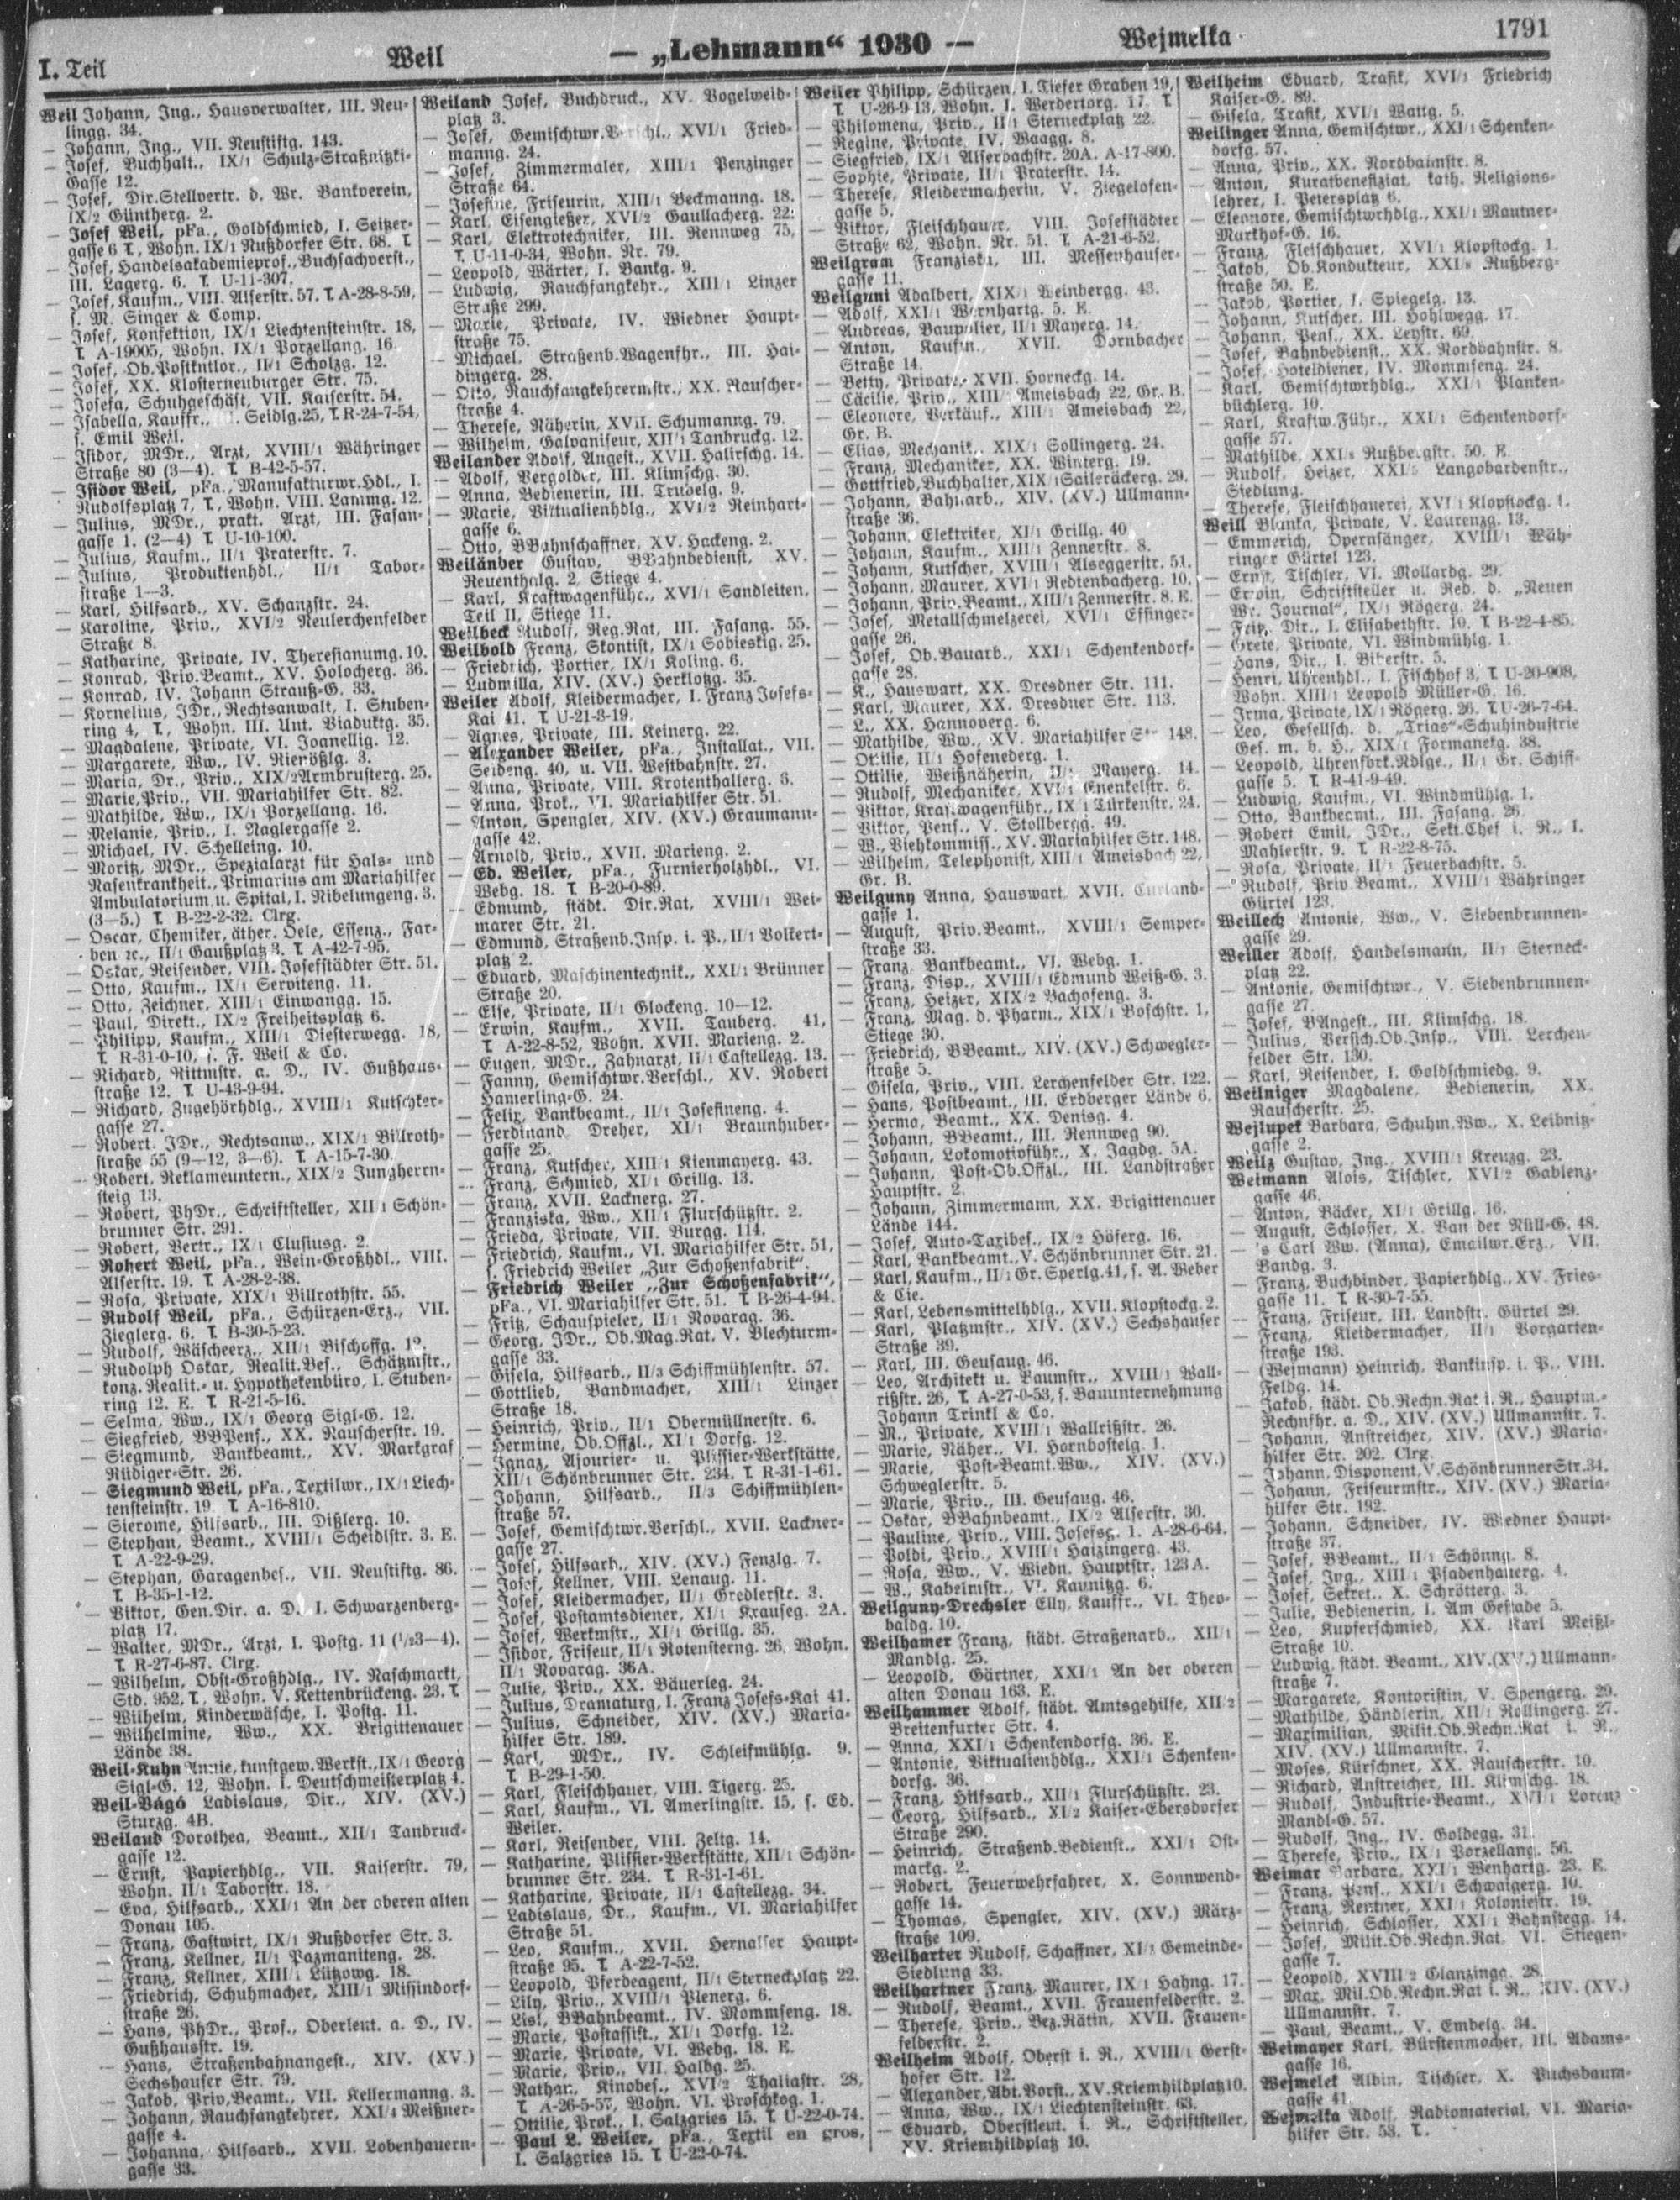 I. Teil
Weil
— „Lehmann“ 1930 —
Wejmelka
1791
Weil Johann, Ing., Hausverwalter, III. Neu-
lingg. 34.
— Johann, Ing., VII. Neustiftg. 143.
— Josef, Buchhalt., IX/1 Schulz-Straßnitzki-
Gasse 12.
— Josef, Dir.Stellvertr. d. Wr. Bankverein,
IX/2 Güntherg. 2.
— Josef Weil, pFa., Goldschmied, I. Seitzer-
gasse 6 T., Wohn. IX/1 Nußdorfer Str. 68. T.
— Josef, Handelsakademieprof., Buchsachverst.,
III. Lagerg. 6. T. U-11-307.
— Josef, Kaufm., VIII. Alserstr. 57. T. A-28-8-59,
s. M. Singer & Comp.
— Josef, Konfektion, IX/1 Liechtensteinstr. 18,
T. A-19005, Wohn. IX/1 Porzellang. 16.
— Josef, Ob.Postkntlor., II/1 Scholzg. 12.
— Josef, XX. Klosterneuburger Str. 75.
— Josefa, Schuhgeschäft, VII. Kaiserstr. 54.
— Isabella, Kauffr., Seidlg. 25, T. R-24-7-54,
s. Emil Weil.
— Isidor, MDr., Arzt, XVIII/1 Währinger
Straße 80 (3—4). T. B-42-5-57.
— Isidor Weil, pFa., Manufakturwr.Hdl., I.
Rudolfsplatz 7, T., Wohn. VIII. Lammg. 12.
— Julius, MDr., prakt. Arzt, III. Fasan-
gasse 1. (2—4) T. U-10-100.
— Julius, Kaufm., II/1 Praterstr. 7.
— Julius, Produktenhdl., II/1 Tabor-
straße 1—3.
— Karl, Hilfsarb., XV. Schanzstr. 24.
— Karoline, Priv., XVI/2 Neulerchenfelder
Straße 8.
— Katharine, Private, IV. Theresianumg. 10.
— Konrad, Priv.Beamt., XV. Holocherg. 36.
— Konrad, IV. Johann Strauß-G. 33.
— Kornelius, JDr., Rechtsanwalt, I. Stuben-
ring 4, T., Wohn. III. Unt. Viaduktg. 35.
— Magdalene, Private, VI. Joanellig. 12.
— Margarete, Ww., IV. Rienößlg. 3.
— Maria, Dr., Priv., XIX/2 Armbrusterg. 25.
— Marie, Priv., VII. Mariahilfer Str. 82.
— Mathilde, Ww., IX/1 Porzellang. 16.
— Melanie, Priv., I. Naglergasse 2.
— Michael, IV. Schelleing. 10.
— Moritz, MDr., Spezialarzt für Hals- und
Nasenkrankheit., Primarius am Mariahilfer
Ambulatorium u. Spital, I. Nibelungeng. 3.
(3—5.) T. B-22-2-32. Clrg.
— Oscar, Chemiker, äther. Oele, Essenz., Far-
ben ꝛc., II/1 Gaußplatz 3. T. A-42-7-95.
— Oskar, Reisender, VIII. Josefstädter Str. 51.
— Otto, Kaufm., IX/1 Serviteng. 11.
— Otto, Zeichner, XIII/1 Einwangg. 15.
— Paul, Direkt., IX/2 Freiheitsplatz 6.
— Philipp, Kaufm., XIII/1 Diesterwegg. 18,
T. R-31-0-10, s. F. Weil & Co.
— Richard, Rittmstr. a. D., IV. Gußhaus-
straße 12. T. U-43-9-94.
— Richard, Zugehörhdlg., XVIII/1 Kutschker-
gasse 27.
— Robert, JDr., Rechtsanw., XIX/1 Billroth-
straße 55 (9—12, 3—6). T. A-15-7-30.
— Robert, Reklameuntern., XIX/2 Jungherrn-
steig 13.
— Robert, PhDr., Schriftsteller, XII/1 Schön-
brunner Str. 291.
— Robert, Vertr., IX/1 Clusiusg. 2.
— Robert Weil, pFa., Wein-Großhdl., VIII.
Alserstr. 19. T. A-28-2-38.
— Rosa, Private, XIX/1 Billrothstr. 55.
— Rudolf Weil, pFa., Schürzen-Erz., VII.
Zieglerg. 6. T. B-30-5-23.
— Rudolf, Wäscheerz., XII/1 Bischoffg. 12.
— Rudolph Oskar, Realit.Bes., Schätzmstr.,
konz. Realit.- u. Hypothekenbüro, I. Stuben-
ring 12. E. T. R-21-5-16.
— Selma, Ww., IX/1 Georg Sigl-G. 12.
— Siegfried, BBPens., XX. Rauscherstr. 19.
— Siegmund, Bankbeamt., XV. Markgraf
Rüdiger-Str. 26.
— Siegmund Weil, pFa., Textilwr., IX/1 Liech-
tensteinstr. 19. T. A-16-810.
— Sierome, Hilfsarb., III. Dißlerg. 10.
— Stephan, Beamt., XVIII/1 Scheidlstr. 3. E.
T. A-22-9-29.
— Stephan, Garagenbes., VII. Neustiftg. 86.
T. B-35-1-12.
— Viktor, Gen.Dir. a. D., I. Schwarzenberg-
platz 17.
— Walter, MDr., Arzt, I. Postg. 11 (1/23—4).
T. R-27-6-87. Clrg.
— Wilhelm, Obst-Großhdlg., IV. Naschmarkt,
Std. 952, T., Wohn. V. Kettenbrückeng. 23. T.
— Wilhelm, Kinderwäsche, I. Postg. 11.
— Wilhelmine, Ww., XX. Brigittenauer
Lände 38.
Weil-Kuhn Annie, kunstgew. Werkst., IX/1 Georg
Sigl-G. 12, Wohn. I. Deutschmeisterplatz 4.
Weil-Vágó Ladislaus, Dir., XIV. (XV.)
Sturzg. 4B.
Weiland Dorothea, Beamt., XII/1 Tanbruck-
gasse 12.
— Ernst, Papierhdlg., VII. Kaiserstr. 79,
Wohn. II/1 Taborstr. 18.
— Eva, Hilfsarb., XXI/1 An der oberen alten
Donau 105.
— Franz, Gastwirt, IX/1 Nußdorfer Str. 3.
— Franz, Kellner, II/1 Pazmaniteng. 28.
— Franz, Kellner, XIII/1 Lützowg. 18.
— Friedrich, Schuhmacher, XIII/1 Missindorf-
straße 26.
— Hans, PhDr., Prof., Oberleut. a. D., IV.
Gußhausstr. 19.
— Hans, Straßenbahnangest., XIV. (XV.)
Sechshauser Str. 79.
— Jakob, Priv.Beamt., VII. Kellermanng. 3.
— Johann, Rauchfangkehrer, XXI/4 Meißner-
gasse 4.
— Johanna, Hilfsarb., XVII. Lobenhauern-
gasse 33.
Weiland Josef, Buchdruck., XV. Vogelweid-
platz 3.
— Josef, Gemischtwr.Verschl., XVI/1 Fried-
manng. 24.
— Josef, Zimmermaler, XIII/1 Penzinger
Straße 64.
— Josefine, Friseurin, XIII/1 Beckmanng. 18.
— Karl, Eisengießer, XVI/2 Gaullacherg. 22.
— Karl, Elektrotechniker, III. Rennweg 75,
T. U-11-0-34, Wohn. Nr. 79.
— Leopold, Wärter, I. Bankg. 9.
— Ludwig, Rauchfangkehr., XIII/1 Linzer
Straße 299.
— Marie, Private, IV. Wiedner Haupt-
straße 75.
— Michael, Straßenb.Wagenfhr., III. Hai-
dingerg. 28.
— Otto, Rauchfangkehrermstr., XX. Rauscher-
straße 4.
— Therese, Näherin, XVII. Schumanng. 79.
— Wilhelm, Galvaniseur, XII/1 Tanbruckg. 12.
Weilander Adolf, Angest., XVII. Halirschg. 14.
— Adolf, Vergolder, III. Klimschg. 30.
— Anna, Bedienerin, III. Trubelg. 9.
— Marie, Viktualienhdlg., XVI/2 Reinhart-
gasse 6.
— Otto, BBahnschaffner, XV. Hackeng. 2.
Weiländer Gustav, BBahnbedienst., XV.
Neuenthalg. 2, Stiege 4.
— Karl, Kraftwagenführ., XVI/1 Sandleiten,
Teil II, Stiege 11.
Weilbeck Rudolf, Reg.Rat, III. Fasang. 55.
Weilbold Franz, Skontist, IX/1 Sobieskig. 25.
— Friedrich, Portier, IX/1 Koling. 6.
— Ludmilla, XIV. (XV.) Herklotzg. 35.
Weiler Adolf, Kleidermacher, I. Franz Josefs-
Kai 41. T. U-21-3-19.
— Agnes, Private, III. Keinerg. 22.
— Alexander Weiler, pFa., Installat., VII.
Seideng. 40, u. VII. Westbahnstr. 27.
— Anna, Private, VIII. Krotenthallerg. 6.
— Anna, Prok., VI. Mariahilfer Str. 51.
— Anton, Spengler, XIV. (XV.) Graumann-
gasse 42.
— Arnold, Priv., XVII. Marieng. 2.
— Ed. Weiler, pFa., Furnierholzhdl., VI.
Webg. 18. T. B-20-0-89.
— Edmund, städt. Dir.Rat, XVIII/1 Wei-
marer Str. 21.
— Edmund, Straßenb.Insp. i. P., II/1 Volkert-
platz 2.
— Eduard, Maschinentechnik., XXI/1 Brünner
Straße 20.
— Else, Private, II/1 Glockeng. 10—12.
— Erwin, Kaufm., XVII. Tauberg. 41,
T. A-22-8-52, Wohn. XVII. Marieng. 2.
— Eugen, MDr., Zahnarzt, II/1 Castellezg. 13.
— Fanny, Gemischtwr.Verschl., XV. Robert
Hamerling-G. 24.
— Felix, Bankbeamt., II/1 Josefineng. 4.
— Ferdinand, Dreher, XI/1 Braunhuber-
gasse 25.
— Franz, Kutscher, XIII/1 Kienmayerg. 43.
— Franz, Schmied, XI/1 Grillg. 13.
— Franz, XVII. Lacknerg. 27.
— Franziska, Ww., XII/1 Flurschützstr. 2.
— Frieda, Private, VII. Burgg. 114.
— Friedrich, Kaufm., VI. Mariahilfer Str. 51,
s. Friedrich Weiler „Zur Schoßenfabrik“.
— Friedrich Weiler „Zur Schoßenfabrik“,
pFa., VI. Mariahilfer Str. 51. T. B-26-4-94.
— Fritz, Schauspieler, II/1 Novarag. 36.
— Georg, JDr., Ob.Mag.Rat, V. Blechturm-
gasse 33.
— Gisela, Hilfsarb., II/3 Schiffmühlenstr. 57.
— Gottlieb, Bandmacher, XIII/1 Linzer
Straße 18.
— Heinrich, Priv., II/1 Obermüllnerstr. 6.
— Hermine, Ob.Offzl., XI/1 Dorfg. 12.
— Ignaz, Ajourier- u. Plissier-Werkstätte,
XII/1 Schönbrunner Str. 234. T. R-31-1-61.
— Johann, Hilfsarb., II/3 Schiffmühlen-
straße 57.
— Josef, Gemischtwr.Verschl., XVII. Lackner-
gasse 27.
— Josef, Hilfsarb., XIV. (XV.) Fenzlg. 7.
— Josef, Kellner, VIII. Lenaug. 11.
— Josef, Kleidermacher, II/1 Gredlerstr. 3.
— Josef, Postamtsdiener, XI/1 Krauseg. 2A.
— Josef, Werkmstr., XI/1 Grillg. 35.
— Isidor, Friseur, II/1 Rotensterng. 26, Wohn.
II/1 Novarag. 36A.
— Julie, Priv., XX. Bäuerleg. 24.
— Julius, Dramaturg, I. Franz Josefs-Kai 41.
— Julius, Schneider, XIV. (XV.) Maria-
hilfer Str. 189.
— Karl, MDr., IV. Schleifmühlg. 9.
T. B-29-1-50.
— Karl, Fleischhauer, VIII. Tigerg. 25.
— Karl, Kaufm., VI. Amerlingstr. 15, s. Ed.
Weiler.
— Karl, Reisender, VIII. Zeltg. 14.
— Katharine, Plissier-Werkstätte, XII/1 Schön-
brunner Str. 234. T. R-31-1-61.
— Katharine, Private, II/1 Castellezg. 34.
— Ladislaus, Dr., Kaufm., VI. Mariahilfer
Straße 51.
— Leo, Kaufm., XVII. Hernalser Haupt-
straße 95. T. A-22-7-52.
— Leopold, Pferdeagent, II/1 Sterneckplatz 22.
— Lily, Priv., XVIII/1 Plenerg. 6.
— Lisl, BBahnbeamt., IV. Mommseng. 18.
— Marie, Postassist., XI/1 Dorfg. 12.
— Marie, Private, VI. Webg. 18. E.
— Marie, Priv., VII. Halbg. 25.
— Nathan, Kinobes., XVI/2 Thaliastr. 28,
T. A-26-5-57, Wohn. VI. Proschkog. 1.
— Ottilie, Prok., I. Salzgries 15. T. U-22-0-74.
— Paul L. Weiler, pFa., Textil en gros,
I. Salzgries 15. T. U-22-0-74.
Weiler Philipp, Schürzen, I. Tiefer Graben 19,
T. U-26-9-13, Wohn. I. Werdertorg. 17. T.
— Philomena, Priv., II/1 Sterneckplatz 22.
— Regine, Private, IV. Waagg. 8.
— Siegfried, IX/1 Alserbachstr. 20A. A-17-800.
— Sophie, Private, II/1 Praterstr. 14.
— Therese, Kleidermacherin, V. Ziegelofen-
gasse 5.
— Viktor, Fleischhauer, VIII. Josefstädter
Straße 62, Wohn. Nr. 51. T. A-21-6-52.
Weilgram Franziska, III. Messenhauser-
gasse 11.
Weilguni Adalbert, XIX/1 Weinbergg. 43.
— Adolf, XXI/1 Wernhartg. 5. E.
— Andreas, Baupolier, II/1 Mayerg. 14.
— Anton, Kaufm., XVII. Dornbacher
Straße 14.
— Betty, Private, XVII. Horneckg. 14.
— Cäcilie, Priv., XIII/1 Ameisbach 22, Gr. B.
— Eleonore, Verkäuf., XIII/1 Ameisbach 22,
Gr. B.
— Elias, Mechanik., XIX/1 Sollingerg. 24.
— Franz, Mechaniker, XX. Winterg. 19.
— Gottfried, Buchhalter, XIX/1 Sailerackerg. 29.
— Johann, Bahnarb., XIV. (XV.) Ullmann-
straße 36.
— Johann, Elektriker, XI/1 Grillg. 40.
— Johann, Kaufm., XIII/1 Zennerstr. 8.
— Johann, Kutscher, XVIII/1 Alseggerstr. 51.
— Johann, Maurer, XVI/1 Redtenbacherg. 10.
— Johann, Priv.Beamt., XIII/1 Zennerstr. 8. E.
— Josef, Metallschmelzerei, XVI/1 Effinger-
gasse 26.
— Josef, Ob.Bauarb., XXI/1 Schenkendorf-
gasse 28.
— K., Hauswart, XX. Dresdner Str. 111.
— Karl, Maurer, XX. Dresdner Str. 113.
— L., XX. Hannoverg. 6.
— Mathilde, Ww., XV. Mariahilfer Str. 148.
— Ottilie, II/1 Hofenederg. 1.
— Ottilie, Weißnäherin, II/1 Mayerg. 14.
— Rudolf, Mechaniker, XVI/1 Enenkelstr. 6.
— Viktor, Kraftwagenführ., IX/1 Türkenstr. 24.
— Viktor, Pens., V. Stollbergg. 49.
— W., Viehkommiss., XV. Mariahilfer Str. 148.
— Wilhelm, Telephonist, XIII/1 Ameisbach 22,
Gr. B.
Weilguny Anna, Hauswart, XVII. Curland-
gasse 1.
— August, Priv.Beamt., XVIII/1 Semper-
straße 33.
— Franz, Bankbeamt., VI. Webg. 1.
— Franz, Disp., XVIII/1 Edmund Weiß-G. 3.
— Franz, Heizer, XIX/2 Bachofeng. 3.
— Franz, Mag. d. Pharm., XIX/1 Boschstr. 1,
Stiege 30.
— Friedrich, BBeamt., XIV. (XV.) Schwegler-
straße 5.
— Gisela, Priv., VIII. Lerchenfelder Str. 122.
— Hans, Postbeamt., III. Erdberger Lände 6.
— Herma, Beamt., XX. Denisg. 4.
— Johann, BBeamt., III. Rennweg 90.
— Johann, Lokomotivführ., X. Jagdg. 5A.
— Johann, Post-Ob.Offzl., III. Landstraßer
Hauptstr. 2.
— Johann, Zimmermann, XX. Brigittenauer
Lände 144.
— Josef, Auto-Taxibes., IX/2 Höferg. 16.
— Karl, Bankbeamt., V. Schönbrunner Str. 21.
— Karl, Kaufm., II/1 Gr. Sperlg. 41, s. A. Weber
& Cie.
— Karl, Lebensmittelhdlg., XVII. Klopstockg. 2.
— Karl, Platzmstr., XIV. (XV.) Sechshauser
Straße 39.
— Karl, III. Geusaug. 46.
— Leo, Architekt u. Baumstr., XVIII/1 Wall-
rißstr. 26, T. A-27-0-53, s. Bauunternehmung
Johann Trinkl & Co.
— M., Private, XVIII/1 Wallrißstr. 26.
— Marie, Näher., VI. Hornbostelg. 1.
— Marie, Post-Beamt.Ww., XIV. (XV.)
Schweglerstr. 5.
— Marie, Priv., III. Geusaug. 46.
— Oskar, BBahnbeamt., IX/2 Alserstr. 30.
— Pauline, Priv., VIII. Josefsg. 1. A-28-6-64.
— Poldi, Priv., XVIII/1 Haizingerg. 43.
— Rosa, Ww., V. Wiedn. Hauptstr. 123A.
— W., Kabelmstr., VI. Kaunitzg. 6.
Weilguny-Drechsler Elly, Kauffr., VI. Theo-
baldg. 10.
Weilhamer Franz, städt. Straßenarb., XII/1
Mandlg. 25.
— Leopold, Gärtner, XXI/1 An der oberen
alten Donau 163. E.
Weilhammer Adolf, städt. Amtsgehilfe, XII/2
Breitenfurter Str. 4.
— Anna, XXI/1 Schenkendorfg. 36. E.
— Antonie, Viktualienhdlg., XXI/1 Schenken-
dorfg. 36.
— Franz, Hilfsarb., XII/1 Flurschützstr. 23.
— Georg, Hilfsarb., XI/2 Kaiser-Ebersdorfer
Straße 290.
— Heinrich, Straßenb.Bedienst., XXI/1 Ost-
markg. 2.
— Robert, Feuerwehrfahrer, X. Sonnwend-
gasse 14.
— Thomas, Spengler, XIV. (XV.) März-
straße 109.
Weilharter Rudolf, Schaffner, XI/1 Gemeinde-
Siedlung 33.
Weilhartner Franz, Maurer, IX/1 Hahng. 17.
— Rudolf, Beamt., XVII. Frauenfelderstr. 2.
— Therese, Priv., Bez.Rätin, XVII. Frauen-
felderstr. 2.
Weilheim Adolf, Oberst i. R., XVIII/1 Gerst-
hofer Str. 12.
— Alexander, Abt.Vorst., XV. Kriemhildplatz 10.
— Anna, Ww., IX/1 Liechtensteinstr. 63.
— Eduard, Oberstleut. i. R., Schriftsteller,
XV. Kriemhildplatz 10.
Weilheim Eduard, Trafik, XVI/1 Friedrich
Kaiser-G. 89.
— Gisela, Trafik, XVI/1 Wattg. 5.
Weilinger Anna, Gemischtwr., XXI/1 Schenken-
dorfg. 57.
— Anna, Priv., XX. Nordbahnstr. 8.
— Anton, Kuratbenefiziat, kath. Religions-
lehrer, I. Petersplatz 6.
— Eleonore, Gemischtwrhdlg., XXI/1 Mautner-
Markhof-G. 16.
— Franz, Fleischhauer, XVI/1 Klopstockg. 1.
— Jakob, Ob.Kondukteur, XXI/8 Rußberg-
straße 50. E.
— Jakob, Portier, I. Spiegelg. 13.
— Johann, Kutscher, III. Hohlwegg. 17.
— Johann, Pens., XX. Leystr. 69.
— Josef, Bahnbedienst., XX. Nordbahnstr. 8.
— Josef, Hoteldiener, IV. Mommseng. 24.
— Karl, Gemischtwrhdlg., XXI/1 Planken-
büchlerg. 10.
— Karl, Kraftw.Führ., XXI/1 Schenkendorf-
gasse 57.
— Mathilde, XXI/8 Rußbergstr. 50. E.
— Rudolf, Heizer, XXI/5 Langobardenstr.,
Siedlung.
— Therese, Fleischhauerei, XVI/1 Klopstockg. 1.
Weill Blanka, Private, V. Laurenzg. 13.
— Emmerich, Opernsänger, XVIII/1 Wäh-
ringer Gürtel 123.
— Ernst, Tischler, VI. Mollardg. 29.
— Erwin, Schriftsteller u. Red. d. „Neuen
Wr. Journal“, IX/1 Rögerg. 24.
— Fritz, Dir., I. Elisabethstr. 10. T. B-22-4-85.
— Grete, Private, VI. Windmühlg. 1.
— Hans, Dir., I. Biberstr. 5.
— Henri, Uhrenhdl., I. Fischhof 3, T. U-20-908,
Wohn. XIII/1 Leopold Müller-G. 16.
— Irma, Private, IX/1 Rögerg. 26. T. U-26-7-64.
— Leo, Gesellsch. d. „Trias“-Schuhindustrie
Ges. m. b. H., XIX/1 Formanekg. 38.
— Leopold, Uhrenfbrk.Ndlge., II/1 Gr. Schiff-
gasse 5. T. R-41-9-49.
— Ludwig, Kaufm., VI. Windmühlg. 1.
— Otto, Bankbeamt., III. Fasang. 26.
— Robert Emil, JDr., Sekt.Chef i. R., I.
Mahlerstr. 9. T. R-22-8-75.
— Rosa, Private, II/1 Feuerbachstr. 5.
— Rudolf, Priv.Beamt., XVIII/1 Währinger
Gürtel 123.
Weillech Antonie, Ww., V. Siebenbrunnen-
gasse 29.
Weiller Adolf, Handelsmann, II/1 Sterneck-
platz 22.
— Antonie, Gemischtwr., V. Siebenbrunnen-
gasse 27.
— Josef, BAngest., III. Klimschg. 18.
— Julius, Versich.Ob.Insp., VIII. Lerchen-
felder Str. 130.
— Karl, Reisender, I. Goldschmiedg. 9.
Weilniger Magdalene, Bedienerin, XX.
Rauscherstr. 25.
Wejlupek Barbara, Schuhm.Ww., X. Leibnitz-
gasse 2.
Weilz Gustav, Ing., XVIII/1 Kreuzg. 23.
Weimann Alois, Tischler, XVI/2 Gablenz-
gasse 46.
— Anton, Bäcker, XI/1 Grillg. 16.
— August, Schlosser, X. Van der Nüll-G. 48.
— 's Carl Ww. (Anna), Emailwr.Erz., VII.
Bandg. 3.
— Franz, Buchbinder, Papierhdlg., XV. Fries-
gasse 11. T. R-30-7-55.
— Franz, Friseur, III. Landstr. Gürtel 29.
— Franz, Kleidermacher, II/1 Vorgarten-
straße 193.
— (Wejmann) Heinrich, Bankinsp. i. P., VIII.
Feldg. 14.
— Jakob, städt. Ob.Rechn.Rat i. R., Hauptm.-
Rechnfhr. a. D., XIV. (XV.) Ullmannstr. 7.
— Johann, Anstreicher, XIV. (XV.) Maria-
hilfer Str. 202. Clrg.
— Johann, Disponent, V. Schönbrunner Str. 34.
— Johann, Friseurmstr., XIV. (XV.) Maria-
hilfer Str. 192.
— Johann, Schneider, IV. Wiedner Haupt-
straße 37.
— Josef, BBeamt., II/1 Schönng. 8.
— Josef, Ing., XIII/1 Pfadenhauerg. 4.
— Josef, Sekret., X. Schrötterg. 3.
— Julie, Bedienerin, I. Am Gestade 5.
— Leo, Kupferschmied, XX. Karl Meißl-
Straße 10.
— Ludwig, städt. Beamt., XIV. (XV.) Ullmann-
straße 7.
— Margarete, Kontoristin, V. Spengerg. 29.
— Mathilde, Händlerin, XII/1 Rollingerg. 27.
— Maximilian, Milit.Ob.Rechn.Rat i. R.,
XIV. (XV.) Ullmannstr. 7.
— Moses, Kürschner, XX. Rauscherstr. 10.
— Richard, Anstreicher, III. Klimschg. 18.
— Rudolf, Industrie-Beamt., XVI/1 Lorenz
Mandl-G. 57.
— Rudolf, Ing., IV. Goldegg. 31.
— Therese, Priv., IX/1 Porzellang. 56.
Weimar Barbara, XXI/1 Wenhartg. 23. E.
— Franz, Pens., XXI/1 Schwaigerg. 10.
— Franz, Rentner, XXI/1 Koloniestr. 19.
— Heinrich, Schlosser, XXI/1 Bahnstegg. 14.
— Josef, Milit.Ob.Rechn.Rat, VI. Stiegen-
gasse 7.
— Leopold, XVIII/2 Glanzingg. 28.
— Max, Mil.Ob.Rechn.Rat i. R., XIV. (XV.)
Ullmannstr. 7.
— Paul, Beamt., V. Embelg. 34.
Weimayer Karl, Bürstenmacher, III. Adams-
gasse 16.
Wejmelek Albin, Tischler, X. Puchsbaum-
gasse 41.
Wejmelka Adolf, Radiomaterial, VI. Maria-
hilfer Str. 53. T.